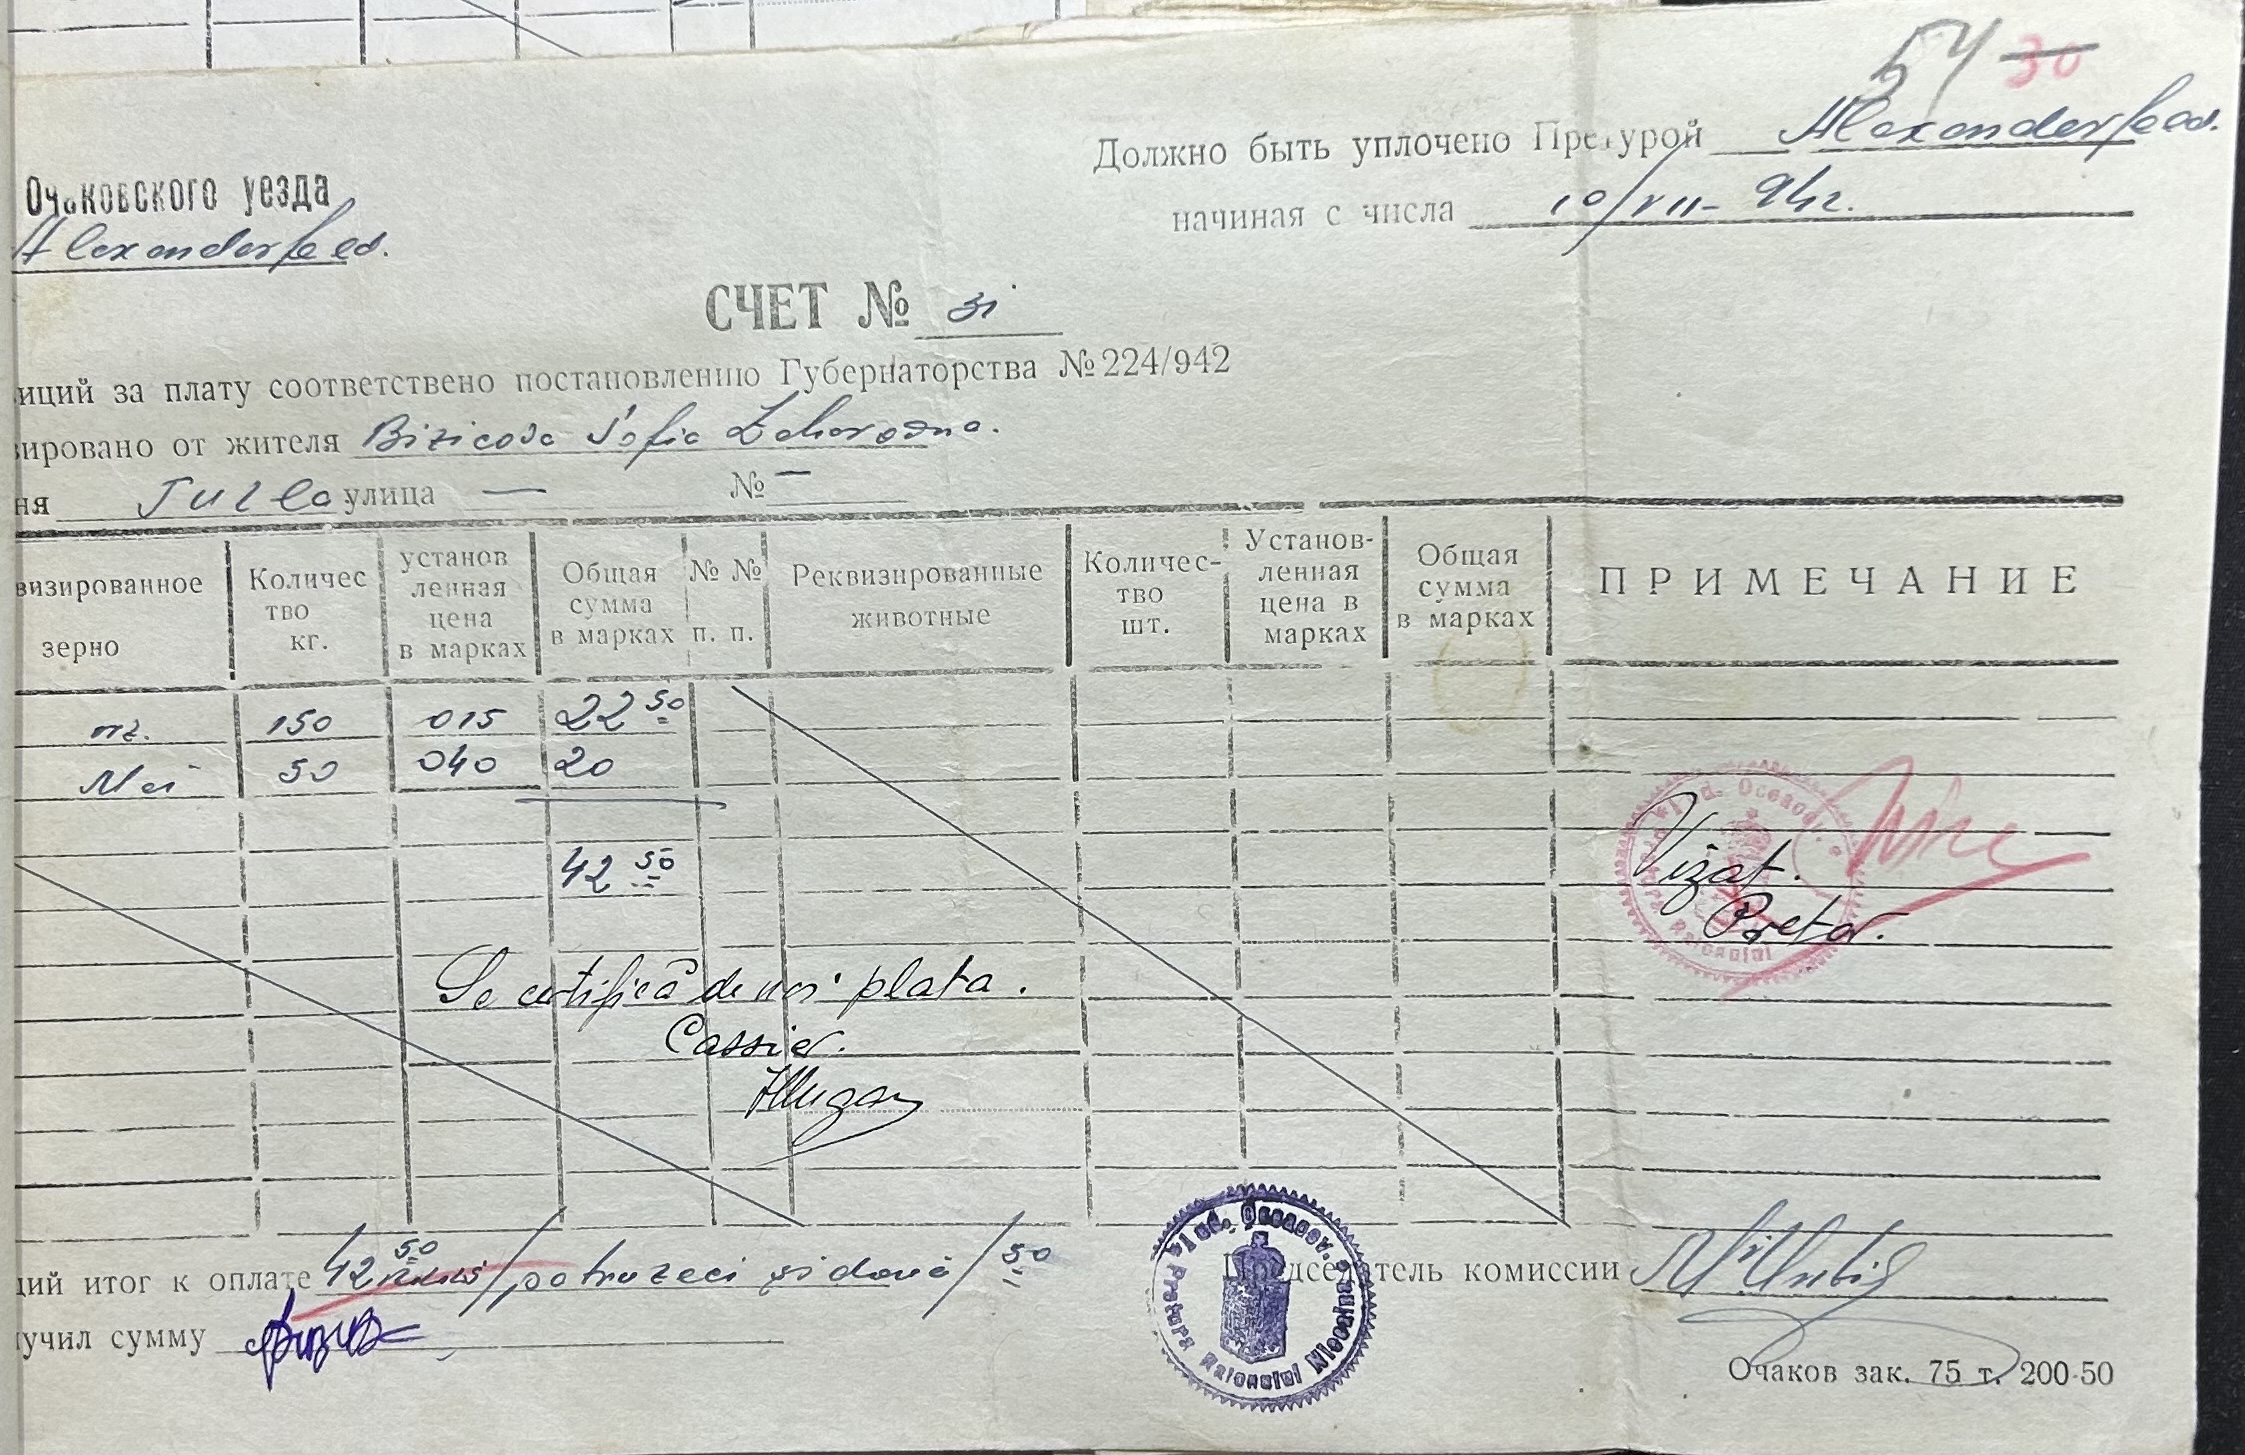 54 30
Должно быть уплочено Претурой Alexanderfeld.
начиная с числа 10/VII-942.
Очаковского уезда
Alexanderfeld.
СЧЕТ № 31
иций за плату соответствено постановлению Губернаторства № 224/942
зировано от жителя Bizicova Sofia
ня улица — № —
визированное зерно
Количес тво кг.
установ ленная цена в марках
Общая сумма в марках
№ № п. п.
Реквизированные животные
Количес- тво шт.
Установ- ленная цена в марках
Общая сумма в марках
ПРИМЕЧАНИЕ
orz. 150 015 22 50
Mei 50 040 20
42 50
Vizat.
Pretor.
Se certifică de noi plata.
Cassier.
щий итог к оплате 42 50 /patruzeci și două/ 50
Председатель комиссии
лучил сумму
Jud. Oceacov. Pretura Raionului
Очаков зак. 75 т. 200-50